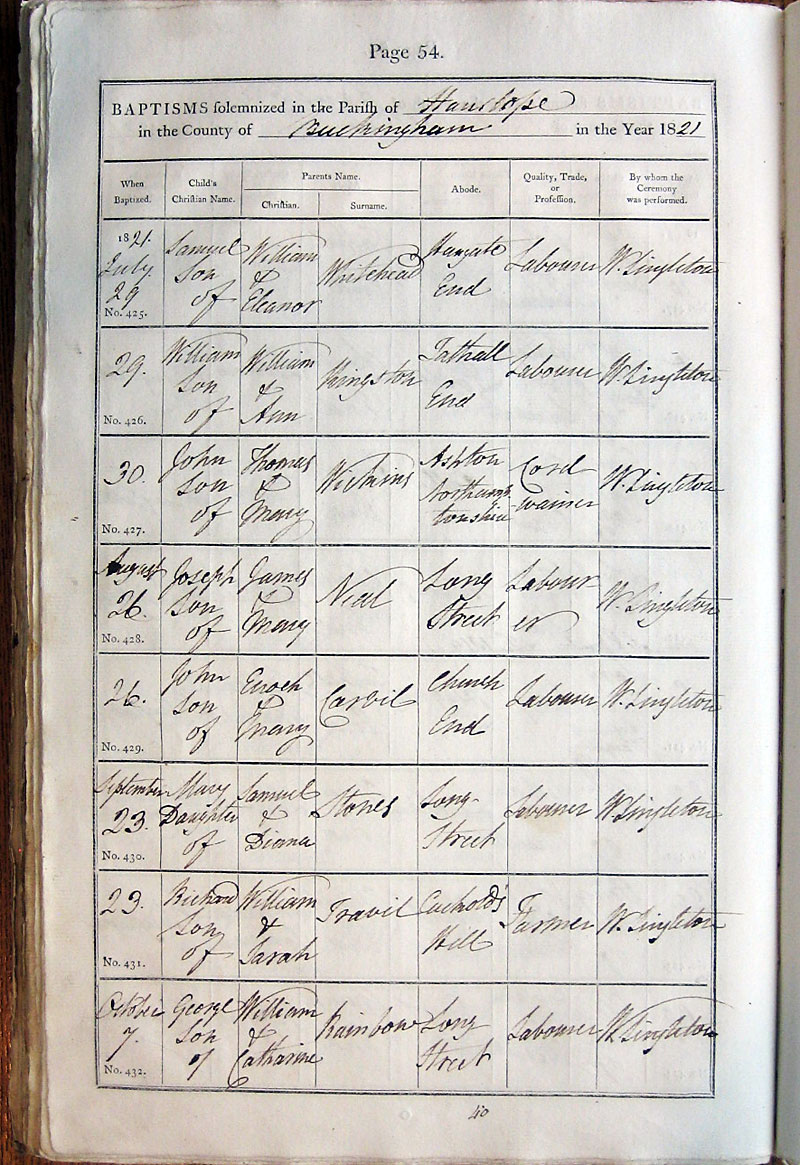 Page 54.
BAPTISMS solemnized in the Parish of Hanslope
in the County of Buckingham in the Year 1821
When Baptized. Child's Christian Name. Parents Name. Christian. Surname. Abode. Quality, Trade, or Profession. By whom the Ceremony was performed.
1821. July 29 No. 425. Samuel Son of William & Eleanor Whitehead Hungate End Labourer W. Singleton
29. No. 426. William Son of William & Ann Kingston Tathall End Labourer W. Singleton
30. No. 427. John Son of Thomas & Mary Wickins Ashton Northamptonshire Cordwainer W. Singleton
August 26. No. 428. Joseph Son of James & Mary Neal Long Street Labourer W. Singleton
26. No. 429. John Son of Enoch & Mary Carvil Church End Labourer W. Singleton
September 23. No. 430. Mary Daughter of Samuel & Diana Stones Long Street Labourer W. Singleton
23. No. 431. Richard Son of William & Sarah Travil Cuckold's Hill Farmer W. Singleton
October 7. No. 432. George Son of William & Catharine Rainbow Long Street Labourer W. Singleton
40